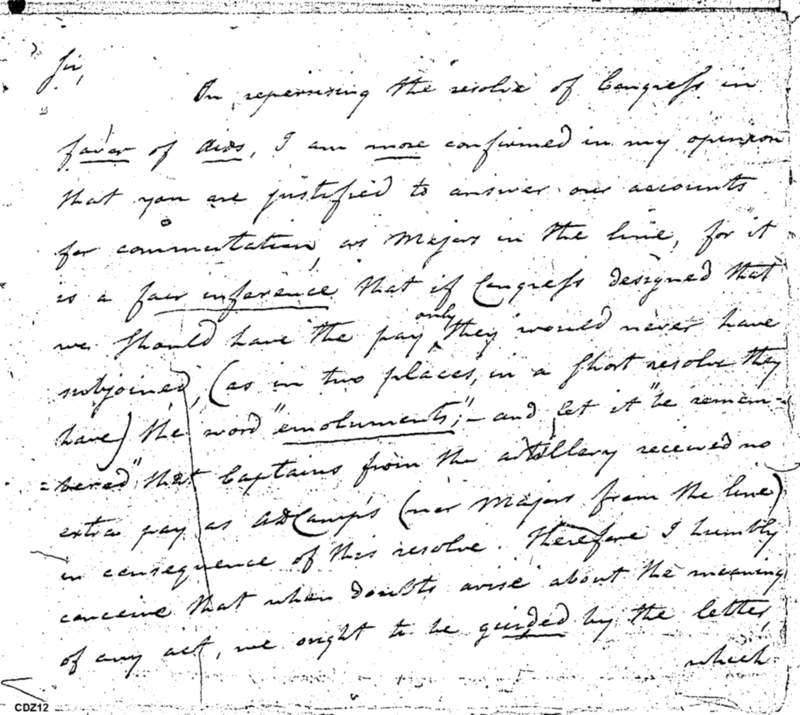 Sir,
On reperusing the resolve of Congress in
favor of Aids, I am more confirmed in my opinion
that you are justified to answer our accounts
for commutation, as Majors in the line, for it
is a fair inference that if Congress designed that
we should have the pay only they would never have
subjoined, (as in two places, in a short resolve they
have) the word "emoluments"; - and let it "be remem-
=bered" that Captains from the artillery received no
extra pay as ADCamps (nor Majors from the line)
in consequence of this resolve. Therefore I humbly
conceive that when doubts arise about the meaning
of any act, we ought to be guided by the letter,
which
CDZ12